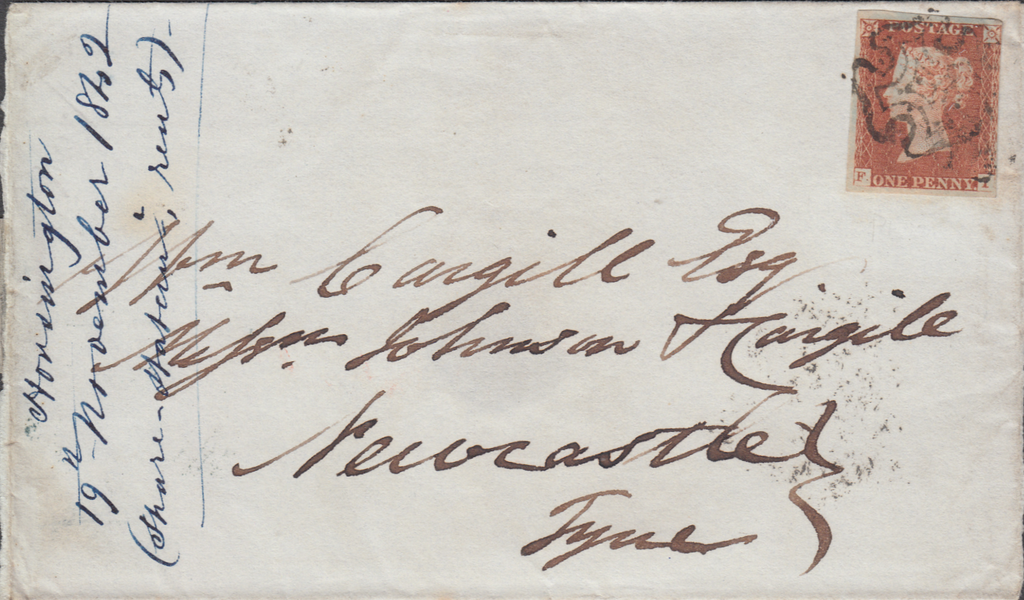 Horsington
19th November 1842
(Share-Hatum, rents)-
POSTAGE
F
ONE PENNY
Wm Cargill Esq
Messrs Johnson & Cargill
Newcastle
Tyne